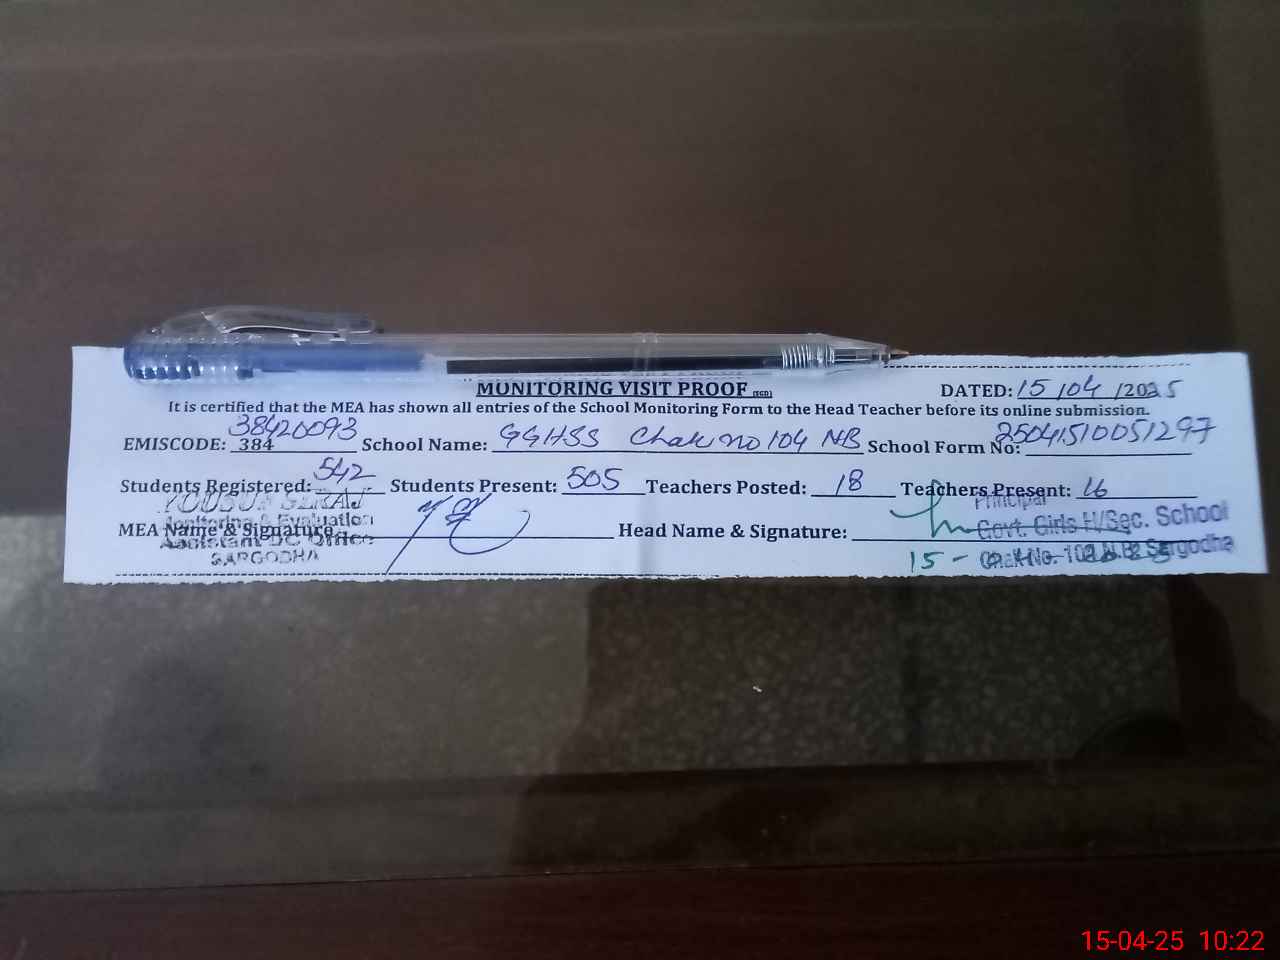 MONITORING VISIT PROOF (SGD) DATED: 15/04/2025
It is certified that the MEA has shown all entries of the School Monitoring Form to the Head Teacher before its online submission.
EMISCODE: 384 38420093 School Name: GGHSS Chak no 104 NB School Form No: 25041510051297
Students Registered: 542 Students Present: 505 Teachers Posted: 18 Teachers Present: 16
MEA Name & Signature: Head Name & Signature:
Monitoring & Evaluation
Assistant DC Office
SARGODHA
Principal
Govt. Girls H/Sec. School
Chak No. N.B Sargodha
15-04-25 10:22